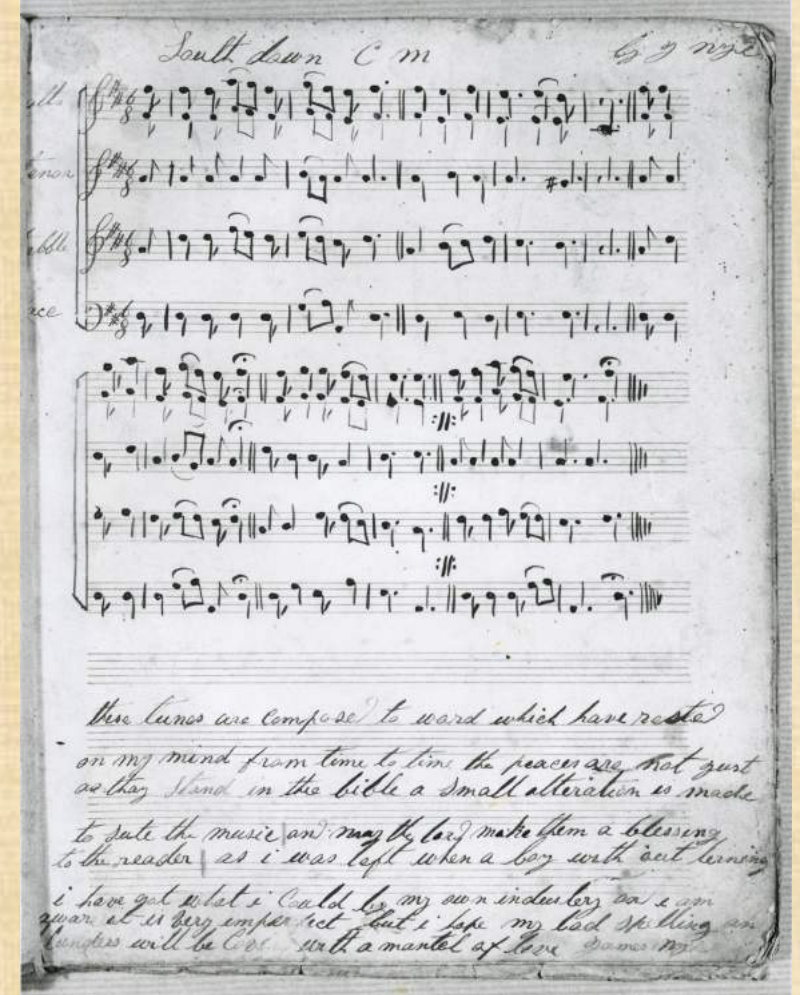 South down C m by J nye
alto
tenor
treble
these tunes are compose to word which have reste
on my mind from time to time the peaces are not gust
as thay stand in the bible a small alteration is made
to sute the music and may the lord make them a blessing
to the reader as i was left when a boy with out lerning
i have got what i Could by my own industery as i am
aware it is very imperfect but i hope my bad spelling an
blunders will be with a mantel of love James